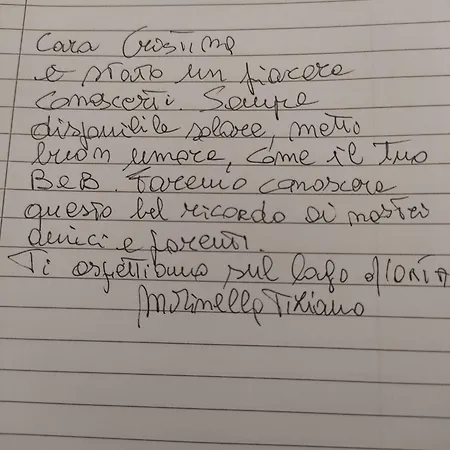 Cara Cristina
è stato un piacere
conoscerti. Sempre
disponibile solare, metto
buon umore, come il tuo
BeB. Faremo conoscere
questo bel ricordo ai nostri
amici e parenti.
Ti aspettiamo sul lago d'
Tiziano